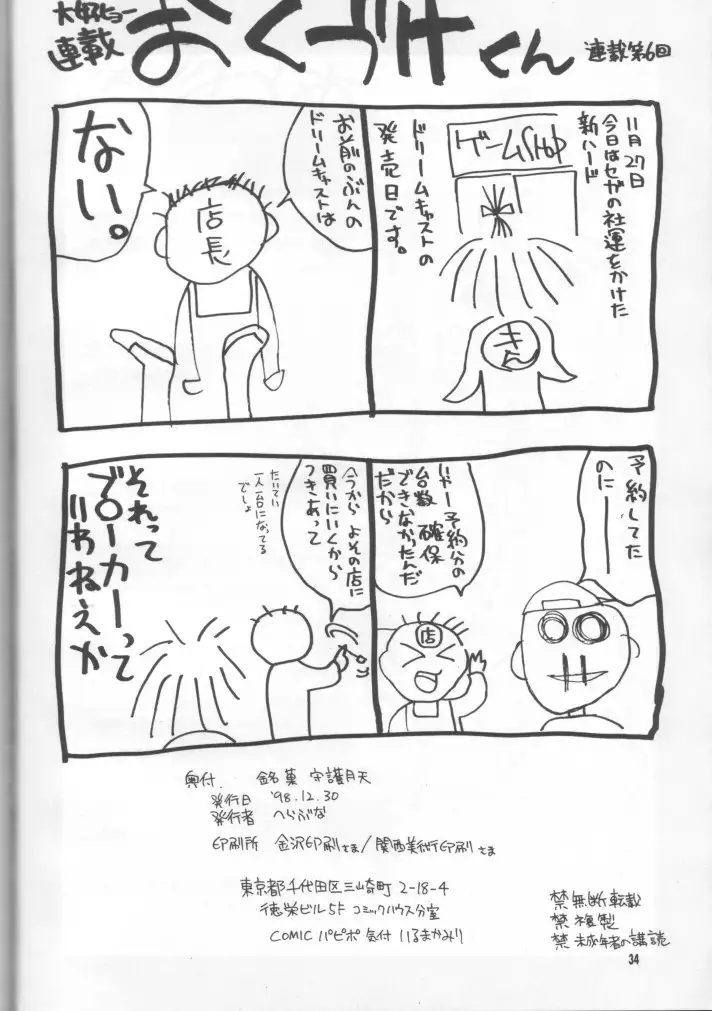 大好ヒョー
連載
おくづけくん
連載第6回
11月27日
今日はセガの社運をかけた
新ハード
ゲームSHOP
ドリームキャストの
発売日です。
きん
お前のぶんの
ドリームキャストは
店長
ない。
予約してた
のにーー
いやー予約分の
台数確保
できなかったんだ
だから
店
今から よその店に
買いにいくから
つきあって
たいてい
一人一台になってる
でしょ
それって
ブローカーって
いわねえか
奥付 銘菓 守護月天
発行日 '98.12.30
発行者 へらぶな
印刷所 金沢印刷さま/関西美術印刷さま
東京都千代田区三崎町 2-18-4
徳栄ビル5F コミックハウス分室
COMIC パピポ 気付 いるまかみり
禁 無断転載
禁 複製
禁 未成年者の講読
34